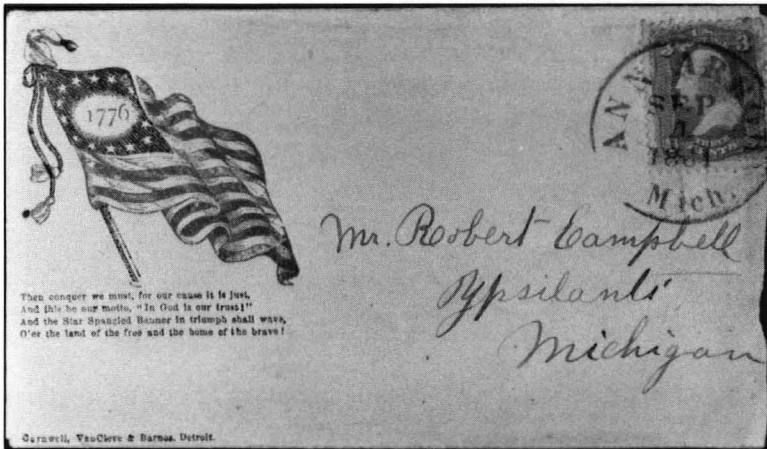 1776
3 3
ANN ARBOR
SEP
4
1861
Mich.
Mr. Robert Campbell
Ypsilanti
Michigan
Then conquer we must, for our cause it is just,
And this be our motto, "In God is our trust!"
And the Star Spangled Banner in triumph shall wave,
O'er the land of the free and the home of the brave!
Cornwell, VanCleve & Barnes, Detroit.